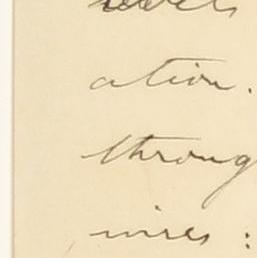 ation.
throug
wires :